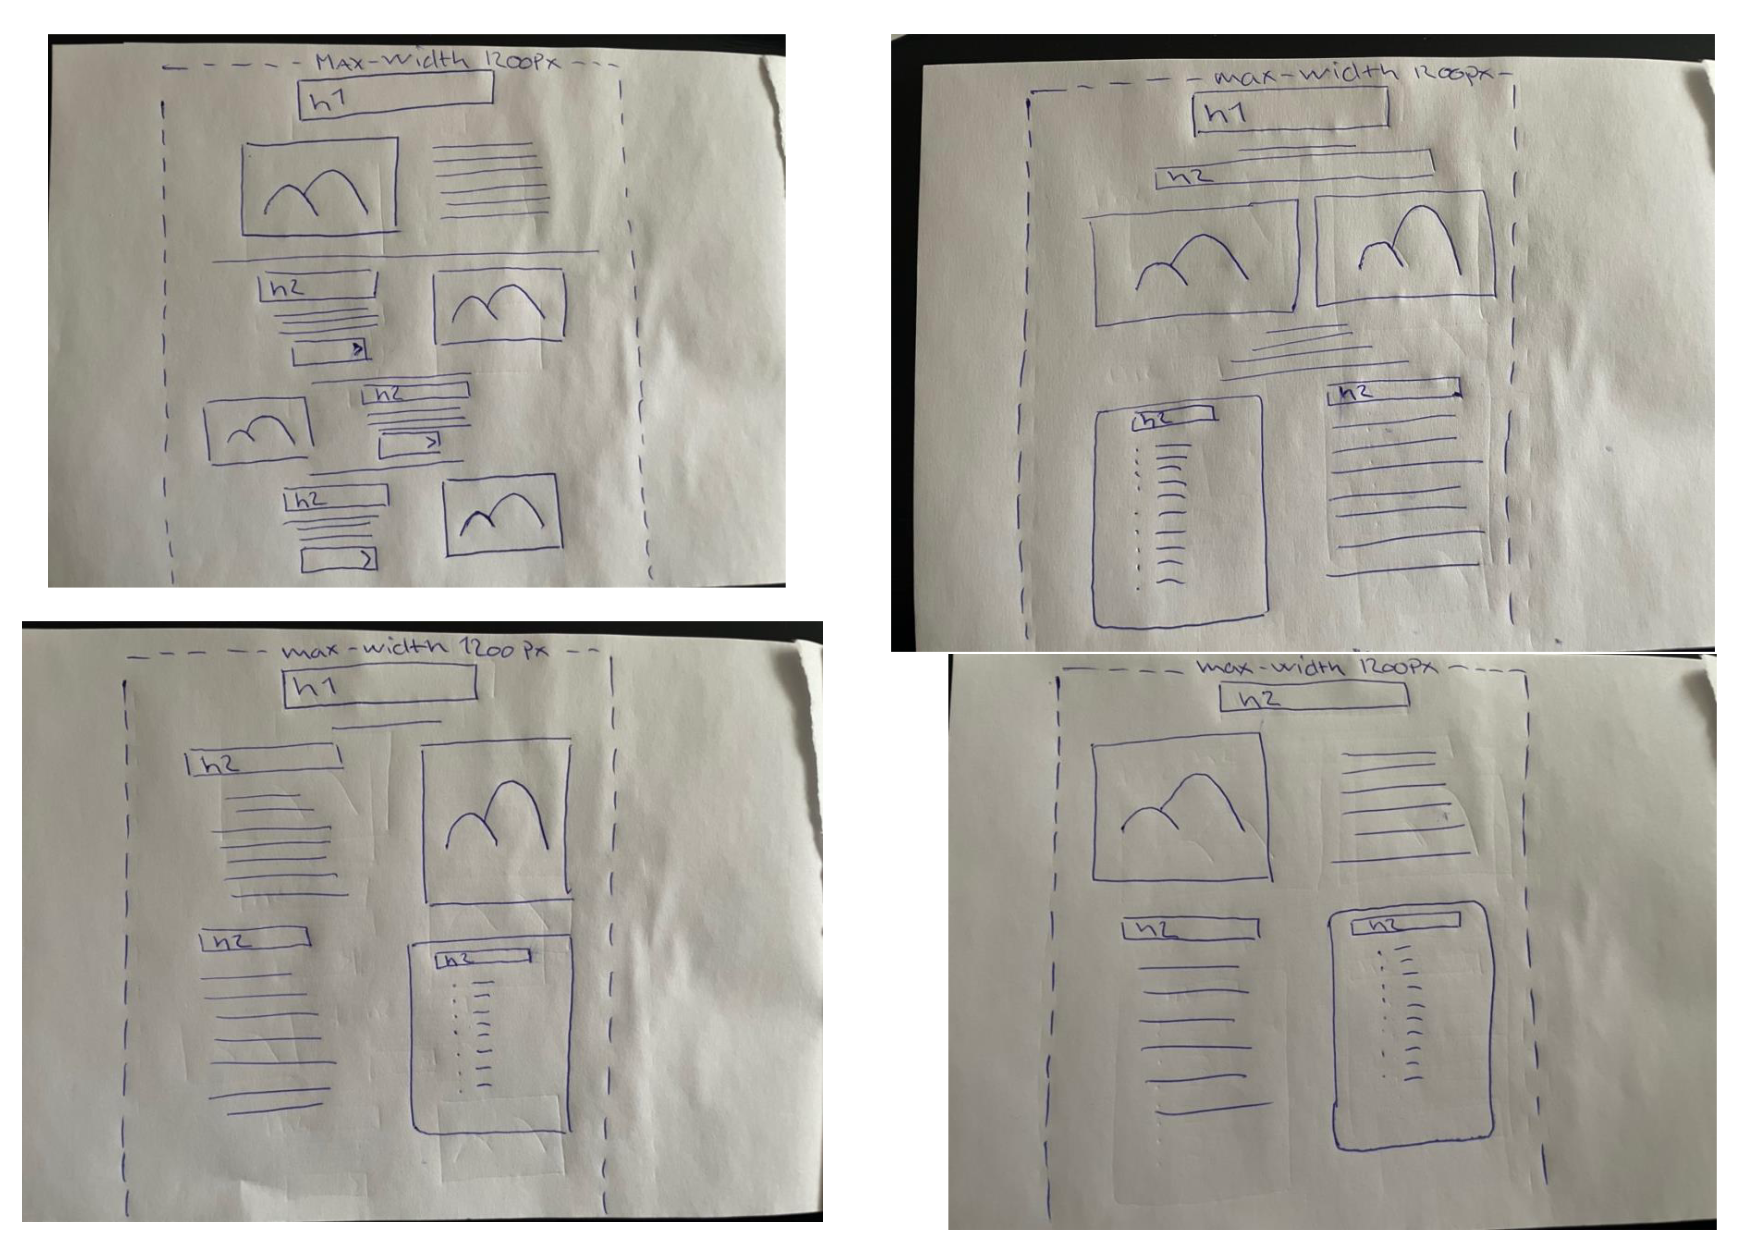 MAX-width 1200px
h1
h2
h2
h2
max-width 1200px
h1
h2
h2
h2
max-width 1200px
h1
h2
h2
h2
max-width 1200px
h2
h2
h2